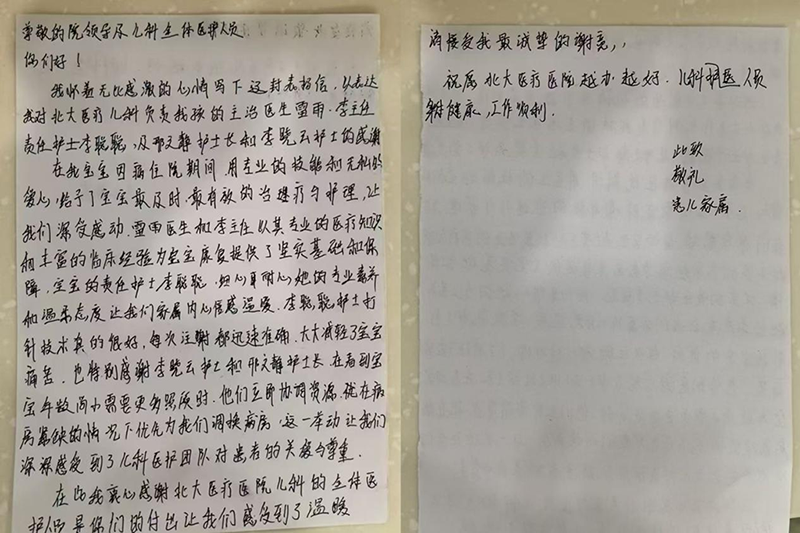 尊敬的院领导及儿科全体医护人员
你们好！
我怀着无比感激的心情写下这封表扬信，以表达
我对北大医疗儿科负责我孩的主治医生雷雨、李主任
责任护士李聪聪，及邢文静护士长和李晓云护士的感谢
在我宝宝因病住院期间，用专业的技能和无私的
爱心，给予了宝宝最及时、最有效的治疗与护理，让
我们深受感动。雷雨医生和李主任以其专业的医疗知识
和丰富的临床经验为宝宝康复提供了坚实基础和保
障，宝宝的责任护士李聪聪，细心耐心她的专业素养
和温柔态度让我们家属内心倍感温暖。李聪聪护士打
针技术真的很好，每次注射都迅速准确，大大减轻了宝宝
痛苦，也特别感谢李晓云护士和邢文静护士长，在看到宝
宝年龄尚小需要更多照顾时，他们立即协调资源，在病
房紧缺的情况下优先为我们调换病房，这一举动让我们
深深感受到了儿科医护团队对患者的关爱与尊重。
在此我衷心感谢北大医疗医院儿科的全体医
护人员是你们的付出让我们感受到了温暖
请接受我最诚挚的谢意，
祝愿北大医疗医院越办越好，儿科医人员
健康，工作顺利。
此致
敬礼
患儿家属.